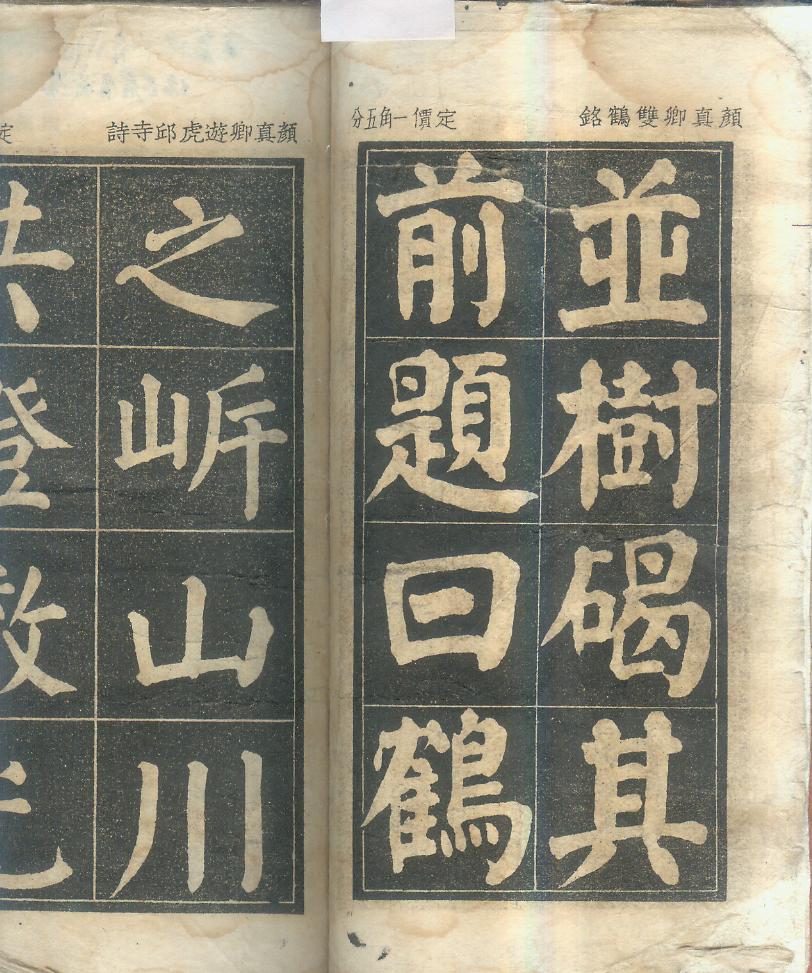 顏真卿雙鶴銘
定價一角五分
並樹碣其
前題曰鶴
顏真卿遊虎邱寺詩
定
之 山川
共登